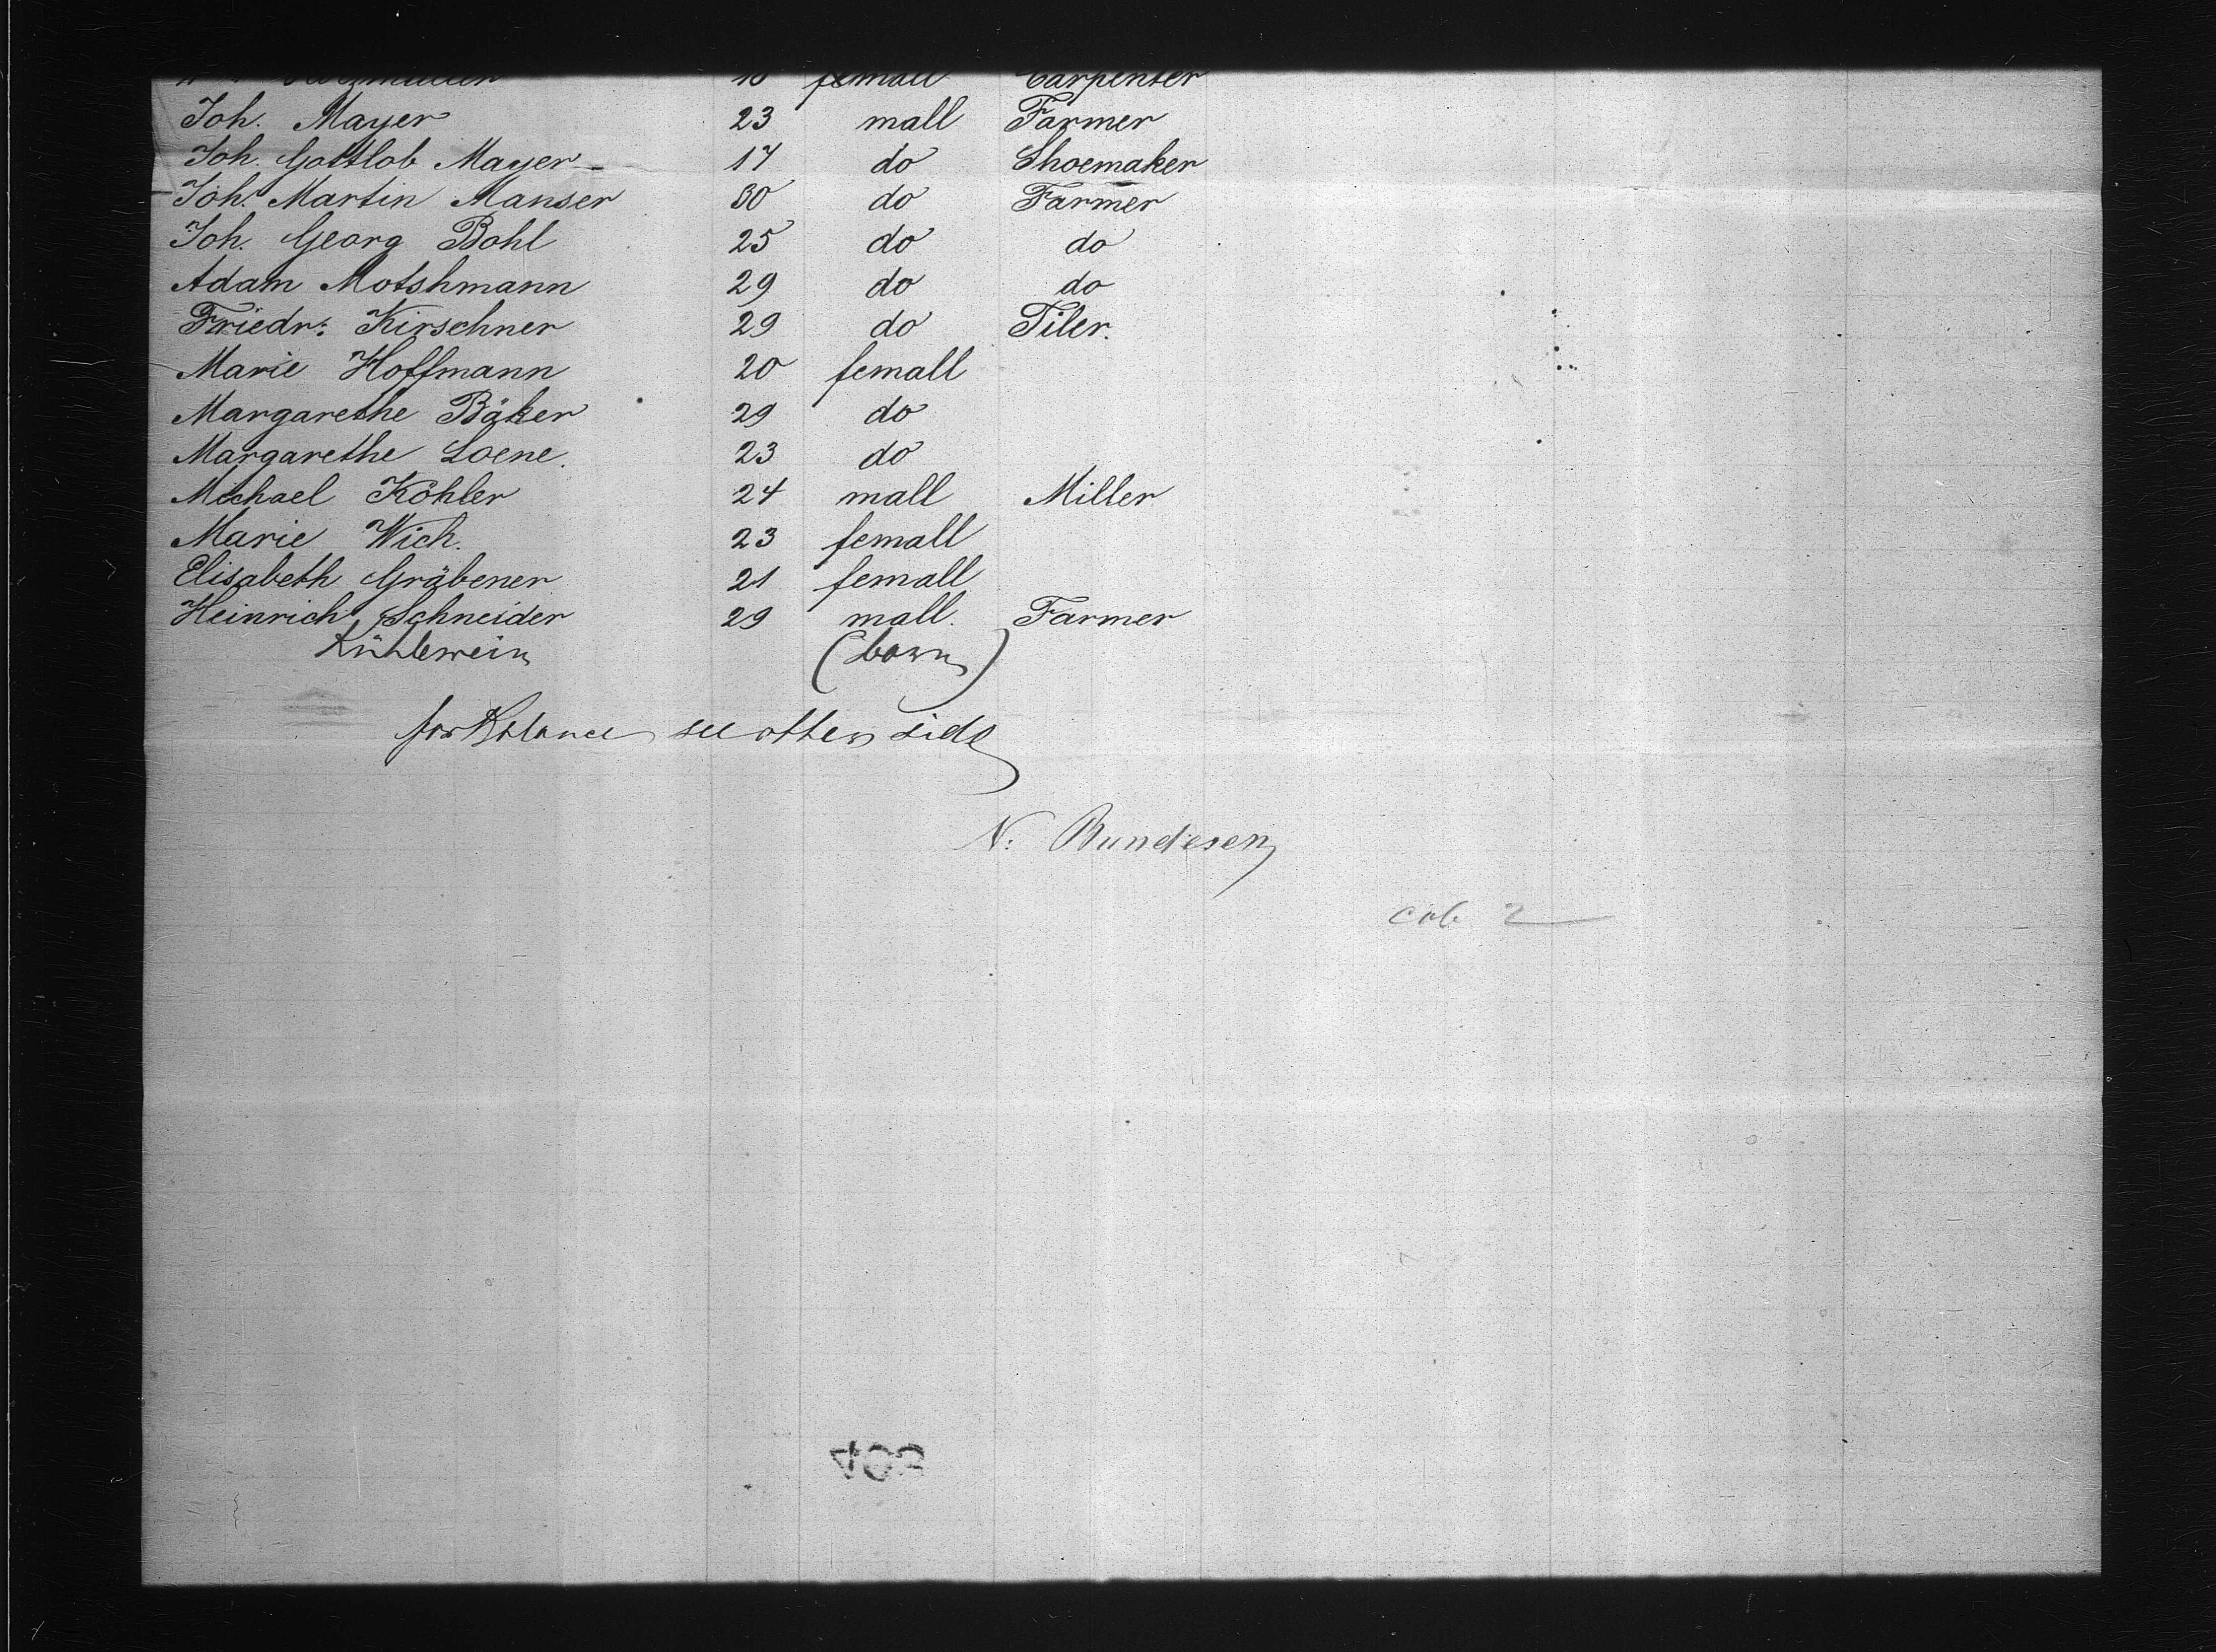 18 femall Carpenter
Joh. Mayer 23 mall Farmer
Joh. Gottlob Mayer 17 do Shoemaker
Joh. Martin Manser 30 do Farmer
Joh. Georg Bohl 25 do do
Adam Motshmann 29 do do
Friedr: Kirschner 29 do Tiler.
Marie Hoffmann 20 femall
Margarethe Bäker 29 do
Margarethe Loene. 23 do
Michael Köhler 24 mall Miller
Marie Wich. 23 femall
Elisabeth Gräbener 21 femall
Heinrich Schneider 29 mall. Farmer
Kühlewein (born)
for Balance see other side
N. Bundesen
cab 2
403